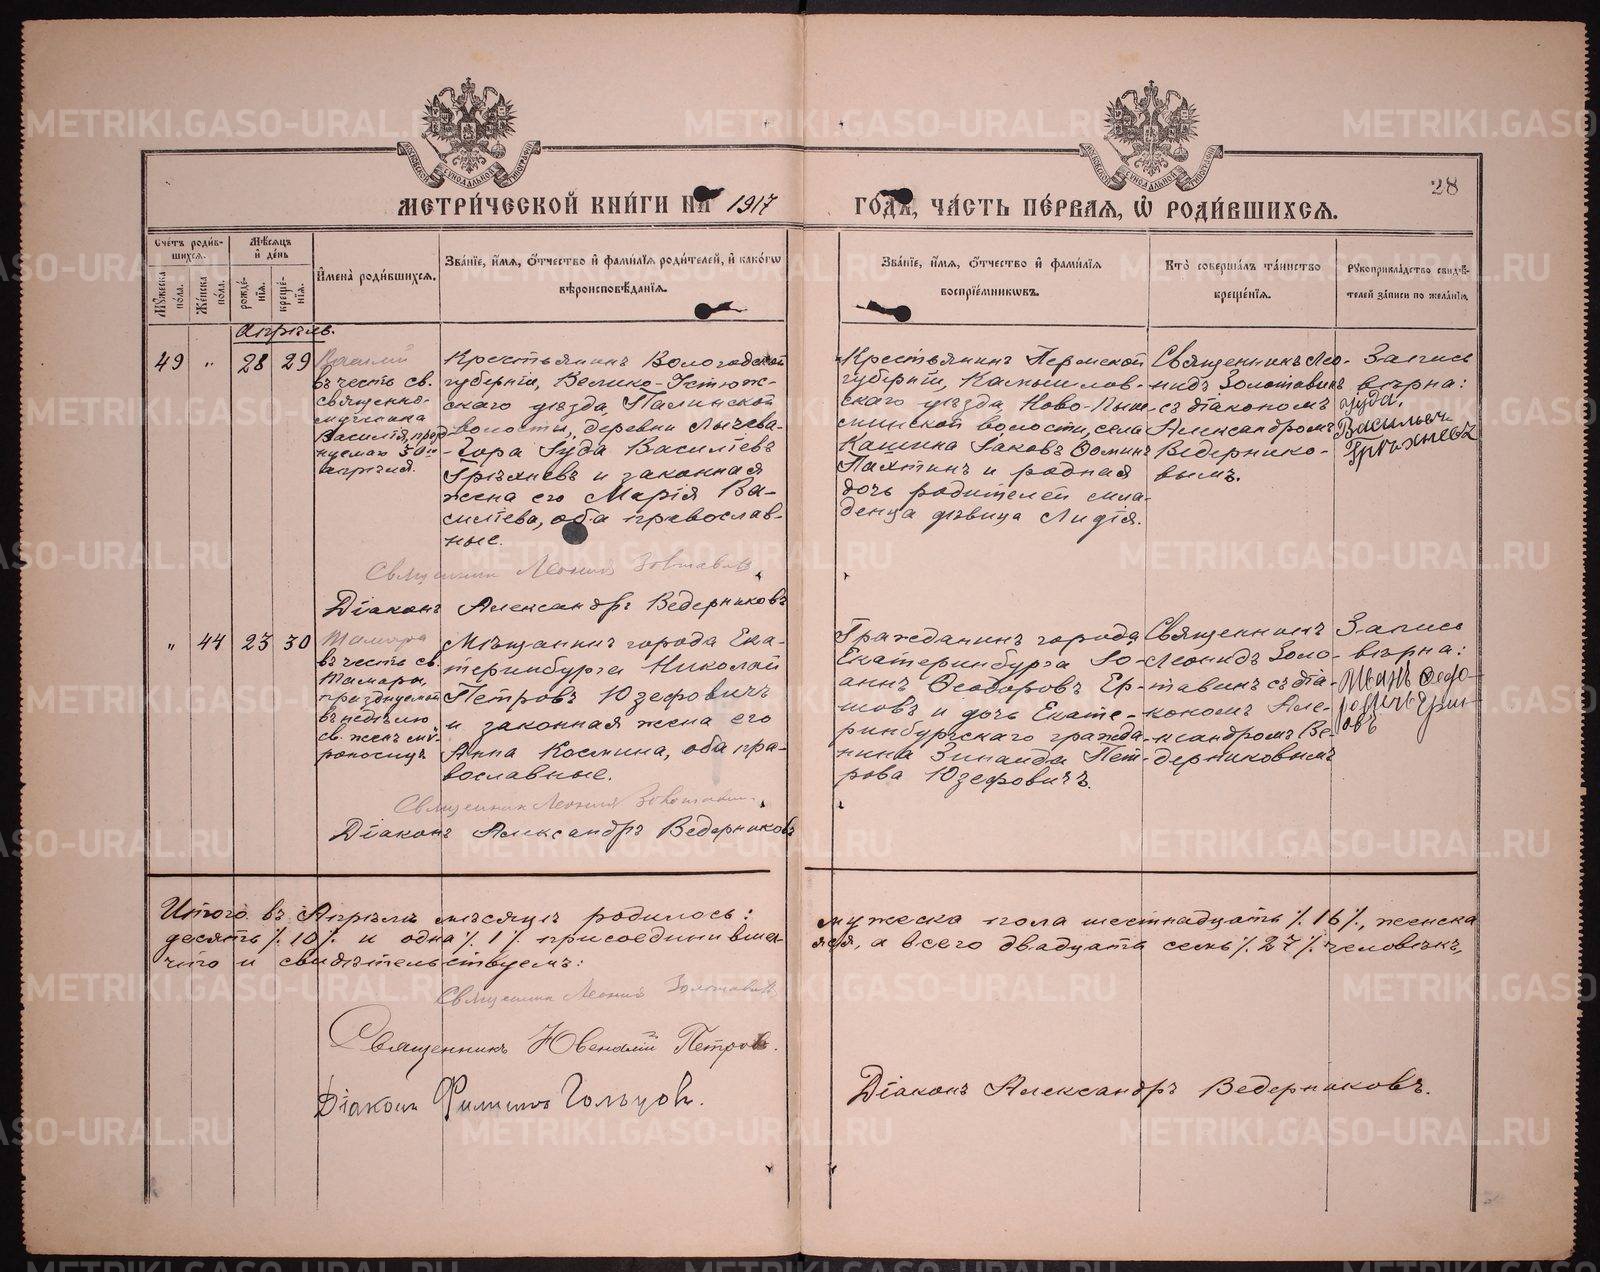 28
МЕТРИ́ЧЕСКОЙ КНИ́ГИ НА 1917 ГО́ДЪ, ЧА́СТЬ ПЕ́РВАЯ, Ѡ РОДИ́ВШИХСЯ.
Счетъ роди́вшихся.
Му́жеска по́ла.
Же́нска по́ла.
Мѣ́сяцъ и де́нь
рожде́нія.
креще́нія.
Имена̀ роди́вшихся.
Зва́ніе, и́мя, о́тчество и фами́лія роди́телей, и како́гѡ
вѣроисповѣ́данія.
Зва́ніе, и́мя, о́тчество и фами́лія
воспріе́мниковъ.
Кто̀ соверша́лъ та́инство
креще́нія.
Рукоприкла́дство свидѣ́-
телей за́писи по жела́нію.
Апрѣль.
49 " 28 29
Василій
въ честь св.
священно-
мученика
Василія, празд
нуемаго 30го
апрѣля.
Крестьянинъ Вологодской
губерніи, Велико-Устюж-
скаго уѣзда,
волости, деревни Лычева-
-Гора Іуда Васильевъ
Грѣхневъ и законная
жена его Марія Ва-
сильева, оба православ-
ные.
Крестьянинъ Пермской
губерніи, Камышлов-
скаго уѣзда, Ново-Пыш-
минской волости, села
Кашина Іаковъ Ѳоминъ
Пахтинъ и родная
дочь родителей мла-
денца дѣвица Лидія.
Священникъ Лео-
нидъ Золотавинъ
съ діакономъ
Александромъ
Ведернико-
вымъ.
Запись
вѣрна:
Іуда
Васильеч
Грѣхневъ
Священникъ Леонидъ Золотавинъ
Діаконъ Александръ Ведерниковъ
" 44 23 30
Тамара
въ честь св.
Тамары,
празднуемой
въ недѣлю
св. женъ мѵ-
роносицъ
Мѣщанинъ города Ека-
теринбурга Николай
Петровъ Юзефовичъ
и законная жена его
Анна Космина, оба пра-
вославные.
Гражданинъ города
Екатеринбурга Іо-
аннъ Ѳеодоровъ Ер-
шовъ и дочь Екате-
ринбургскаго гражда-
нина Зинаида Пет-
рова Юзефовичъ.
Священникъ
Леонидъ Золо-
тавинъ съ діа-
кономъ Але-
ксандромъ Ве-
дерниковымъ
Запись
вѣрна:
Иванъ Ѳедо-
ровичъ Ерш-
овъ
Священникъ Леонидъ Золотавинъ
Діаконъ Александръ Ведерниковъ
Итого въ Апрѣлѣ мѣсяцѣ родилось: мужеска пола шестнадцать ٪ 16 ٪, женска
десять ٪ 10 ٪ и одна ٪ 1 ٪ присоединившая-
яся, а всего двадцать семь ٪ 27 ٪ человѣкъ,
что и свидѣтельствуемъ:
Священникъ Леонидъ Золотавинъ
Священникъ Ювеналій Петровъ.
Діаконъ Филиппъ Гольцовъ.
Діаконъ Александръ Ведерниковъ.
METRIKI.GASO-URAL.RU